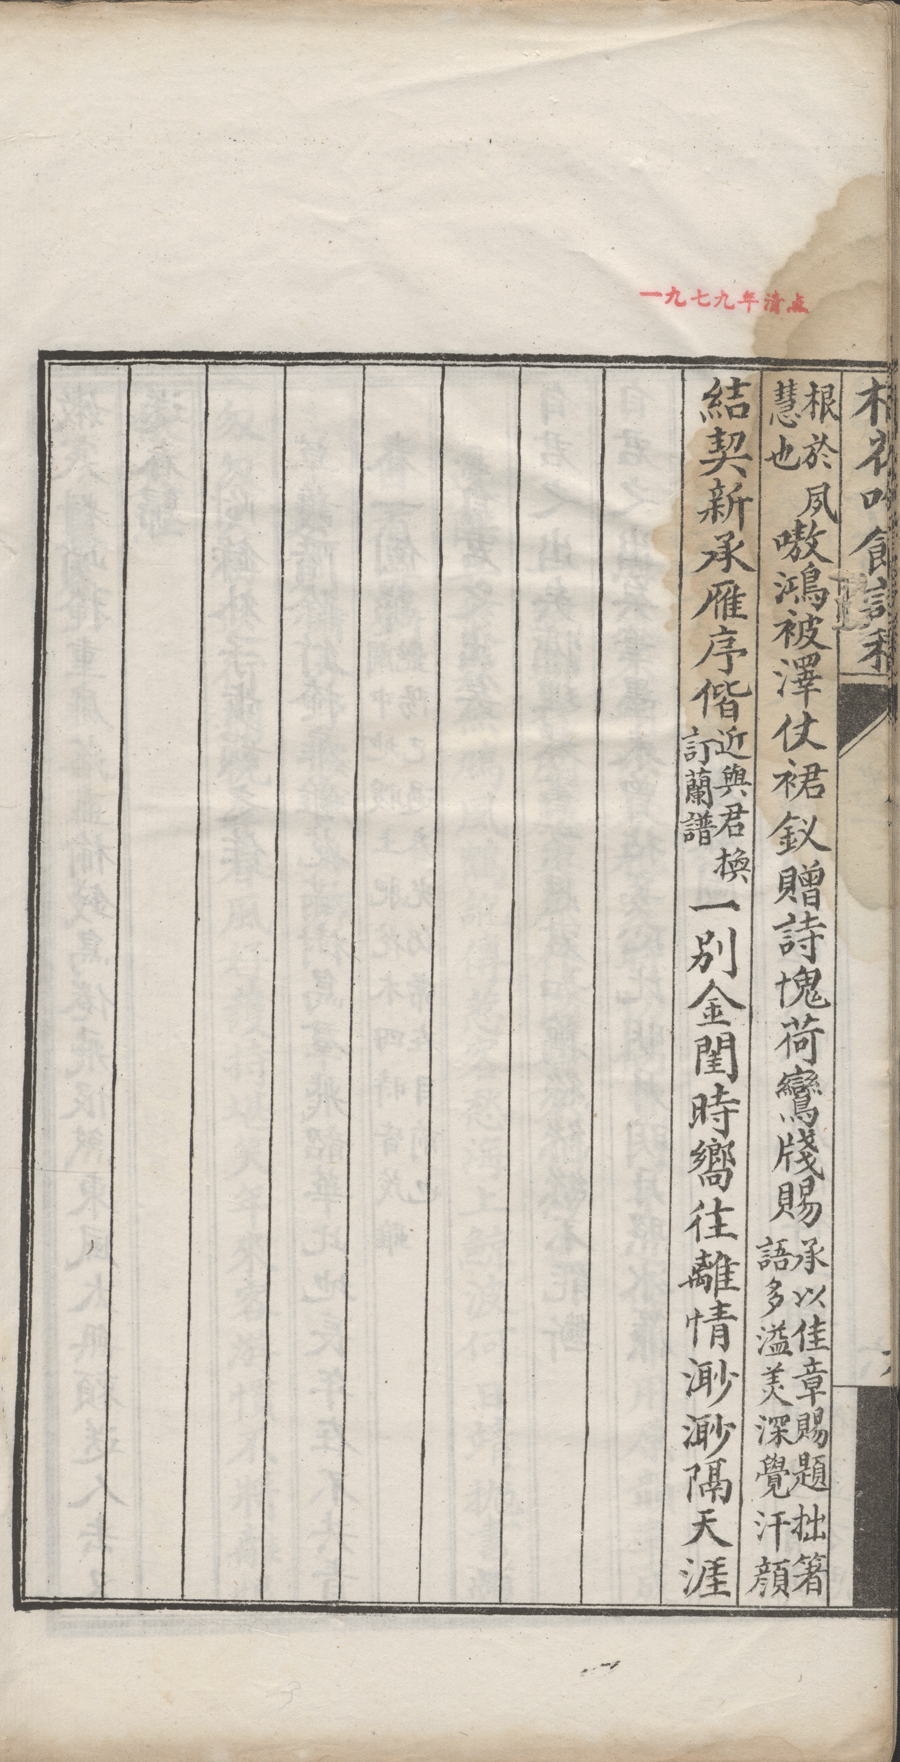 一九七九年清点
根於夙
慧也
嗷鴻被澤仗裙釵贈詩愧荷鸞牋賜
承以佳章賜題拙箸
語多溢美深覺汗顏
結契新承雁序偕
近與君換
訂蘭譜
一別金閨時嚮往離情渺渺隔天涯